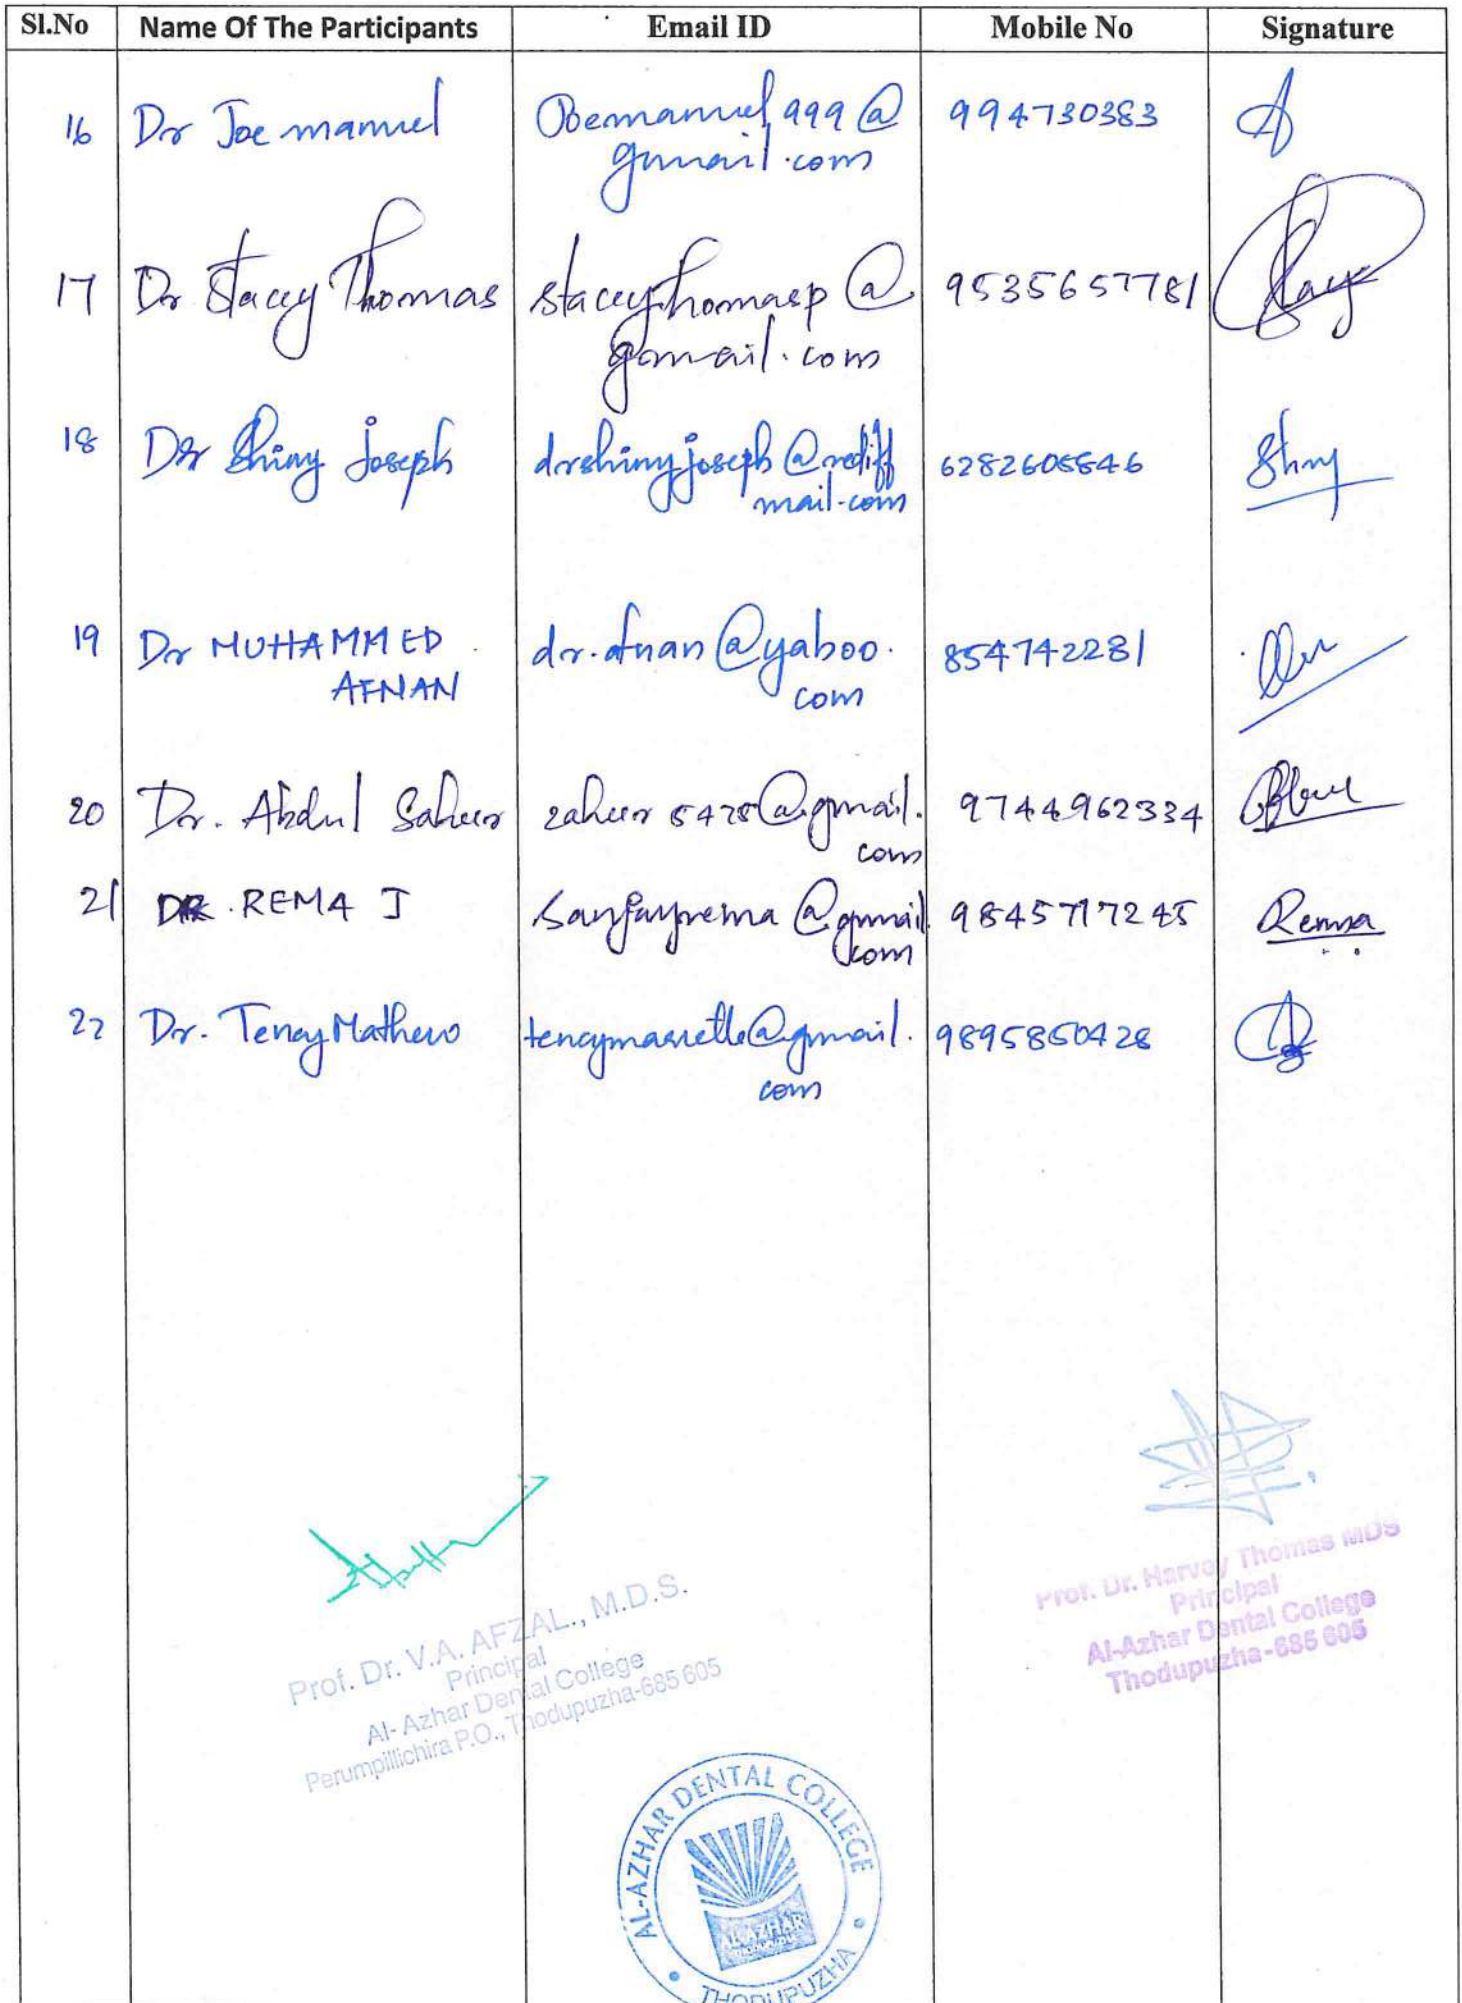 Sl.No Name Of The Participants Email ID Mobile No Signature
16 Dr Joe manuel Joemanuel999@ 994730383
gmail.com
17 Dr Stacey Thomas staceythomasp@ 9535657781
gmail.com
18 Dr Shiny joseph drshinyjoseph@rediff 6282605546 Shiny
mail.com
19 Dr MUHAMMED dr.afnan@yahoo. 854742281
AFNAN com
20 Dr. Abdul Saheer zaheer5475@gmail. 9744962334
com
21 DR. REMA J sanjayrema@gmail. 9845717245 Rema
com
22 Dr. Tency Mathew @gmail. 9895850428
com
Prof. Dr. V.A. AFZAL., M.D.S.
Principal
Al- Azhar Dental College
Perumpillichira P.O., Thodupuzha-685 605
Prof. Dr. Harvey Thomas MDS
Principal
Al-Azhar Dental College
Thodupuzha-685 605
AL-AZHAR DENTAL COLLEGE
AL AZHAR
THODUPUZHA